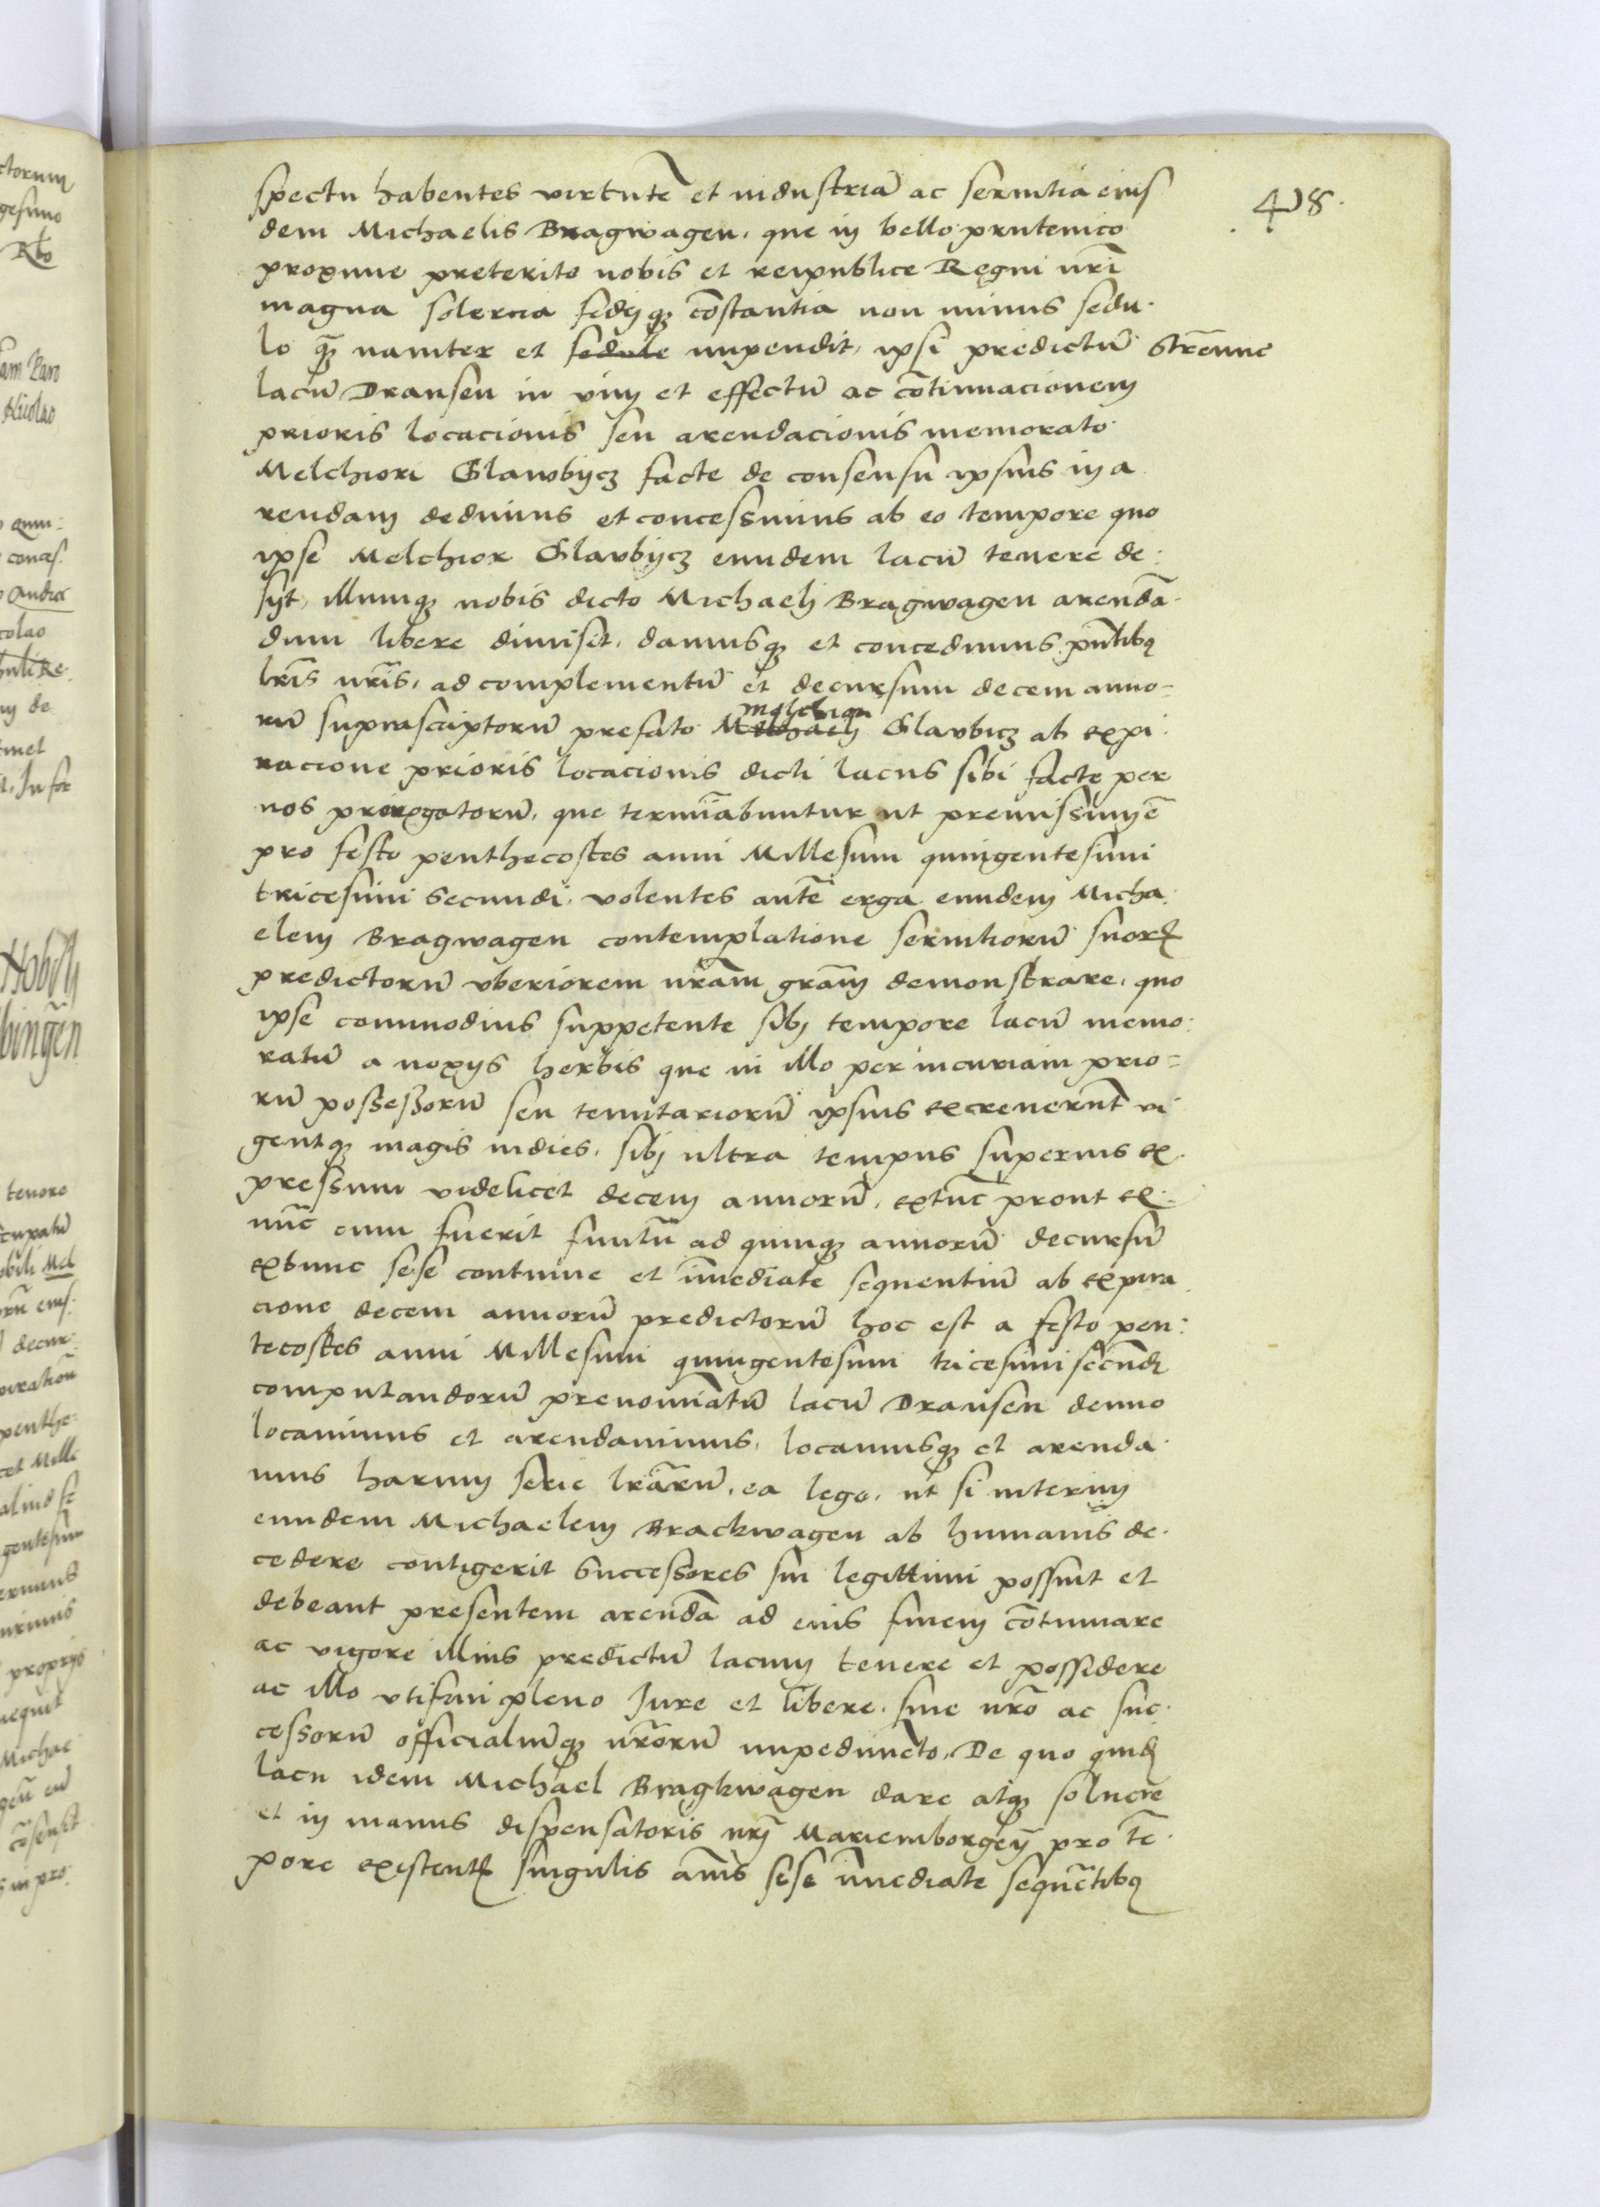 spectu habentes virtutē et industriā ac servitia eius
408.
dem Michaelis Bragwagen, que in bello prutenico
proxime preterito nobis et reipublice Regni nr̄i
magna solercia fideq̨ cōstantia non minus sedu-
lo q̄ꝫ naviter et sedule impendit, ipsi predictū strēnue
lacū Dransen in vim et effectū ac cōtinuacionem
prioris locacionis seu arendacionis memorato
Melchiori Glawbijcz facte de consensu ipsius in a
rendam dedimus et concessimus ab eo tempore quo
ipse Melchior Glawbijcz eundem lacū tenere de-
sijt, illumq̨ nobis dicto Michaeli Bragwagen arendā-
dum libere dimisit, damusq̨ et concedimus pn̄tibꝰ
lr̄is nr̄is, ad complementū et decursum decem anno-
Melchiori
rū suprascriptorū prefato Michaeli Glaubicz ab expi-
racione prioris locacionis dicti lacus sibi facte per
nos prorogatorū, que terminabuntur ut premissum ē
pro festo penthecostes anni Millesimi quingentesimi
tricesimi secundi, volentes autē erga eundem Micha-
elem Bragwagen contemplatione servitiorū suorꝝ
predictorū uberiorem nr̄am gr̄am demonstrare, quo
ipse commodius suppetente sibi tempore lacū memo-
ratū a noxijs herbis que in illo per incuriam prio-
rū possessorū seu tenutariorū ipsius excreverunt vi
gentq̨ magis indies, sibi ultra tempus superius ex-
pressum videlicet decem annorū, extūc prout ex-
nūc cum fuerit finitū ad quinq̨ annorū decursū
exhunc sese continue et īmediate sequentiū ab expira-
cione decem annorū predictorū hoc est a festo pen-
tecostes anni Millesimi quingentesimi tricesimi secūdi
computandorū prenominatū lacū Dransen denuo
locavimus et arendavimus, locamusq̨ et arenda-
mus harum serie lr̄arū, ea lege, ut si interim
eundem Michaelem Brackwagen ab humanis de-
cedere contigerit successores sui legittimi possint et
debeant presentem arendā ad eius finem cōtinuare
ac vigore illius predictū lacum tenere et possidere
ac illo utifrui pleno Jure et libere, sine nr̄o ac suc-
cessorū officialiūq̨ nr̄orū impedimēto, De quo quidē
lacu idem Michael Bragkwagen dare atq̨ solvere
et in manus dispensatoris nr̄i Mariemborgeñ pro tē-
pore existentis singulis ānis sese īmediate sequētibꝰ